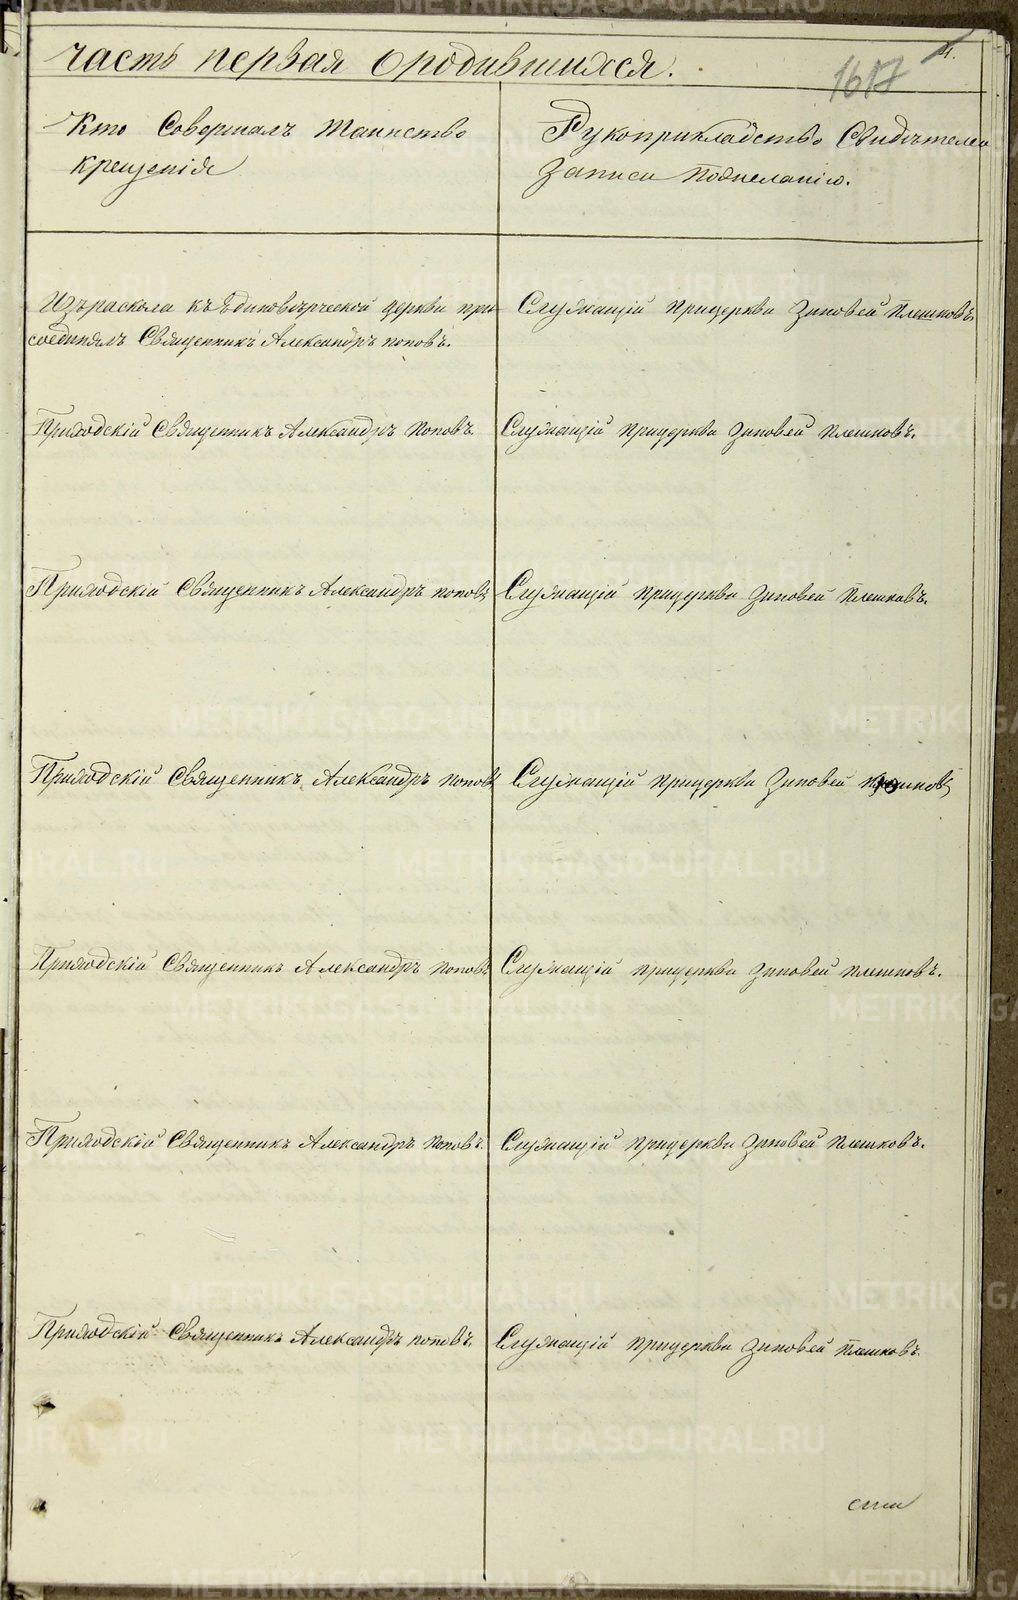 часть первая о родившихся.
1617
4.
Кто Совершалъ Таинство
крещенія
Рукоприкладство Свидѣтелей
записи по желанію.
Изъ раскола къ Единовѣрческой церкви при
соединялъ Священникъ Александръ поповъ.
Служащій при церкви Зиновей Плешковъ.
Приходскій Священникъ Александръ поповъ.
Служащій при церкви Зиновей Плешковъ.
Приходскій Священникъ Александръ поповъ
Служащій при церкви Зиновей Плешковъ.
Приходскій Священникъ Александръ поповъ
Служащій при церкви Зиновей Плешковъ
Приходскій Священникъ Александръ поповъ.
Служащій при церкви Зиновей Плешковъ.
Приходскій Священникъ Александръ поповъ.
Служащій при церкви Зиновей Плешковъ.
Приходскій Священникъ Александръ поповъ.
Служащій при церкви Зиновей Плешковъ.
METRIKI.GASO-URAL.RU